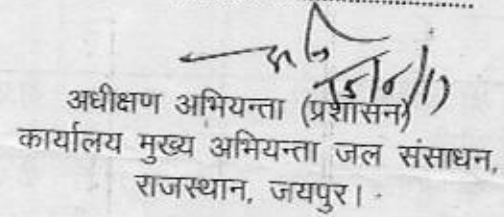 अधीक्षण अभियन्ता (प्रशासन)
कार्यालय मुख्य अभियन्ता जल संसाधन,
राजस्थान, जयपुर।